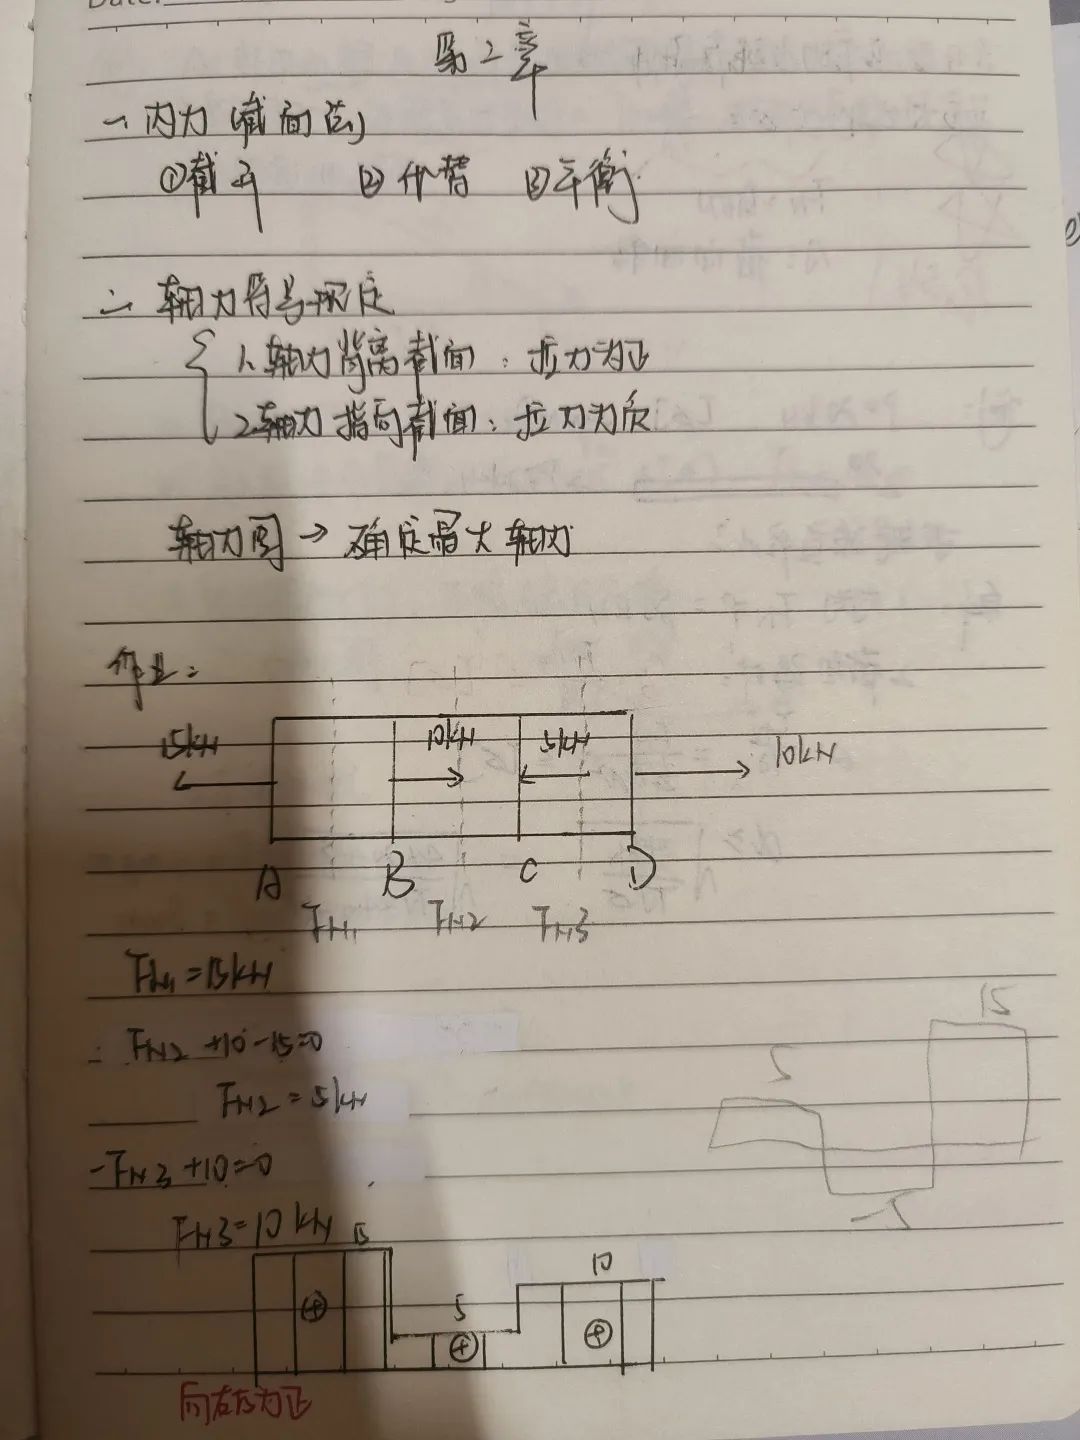 Date:
第2章
一、内力(截面法)
①截开 ②代替 ③平衡
二、轴力符号规定
1.轴力背离截面：拉力为正
2.轴力指向截面：拉力为负
轴力图→确定最大轴力
作业：
15kN 10kN 5kN 10kN
A B C D
FN1 FN2 FN3
FN1=15kN
FN2+10-15=0
FN2=5kN
-FN3+10=0
FN3=10kN
15 5 10
⊕ ⊕ ⊕
向右为正